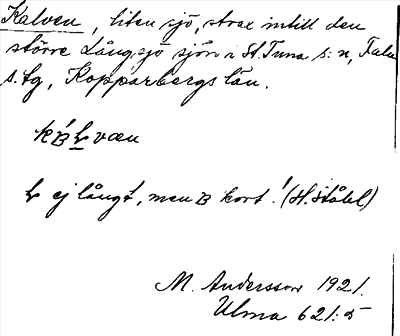 Kalven, liten sjö, strax intill den
större Långsjö sjön i St. Tuna s:n, Falu
s. tg, Kopparbergs län.
ej långt, men kort! (H. Ståhl)
M. Andersson 1921.
Ulma 621:5